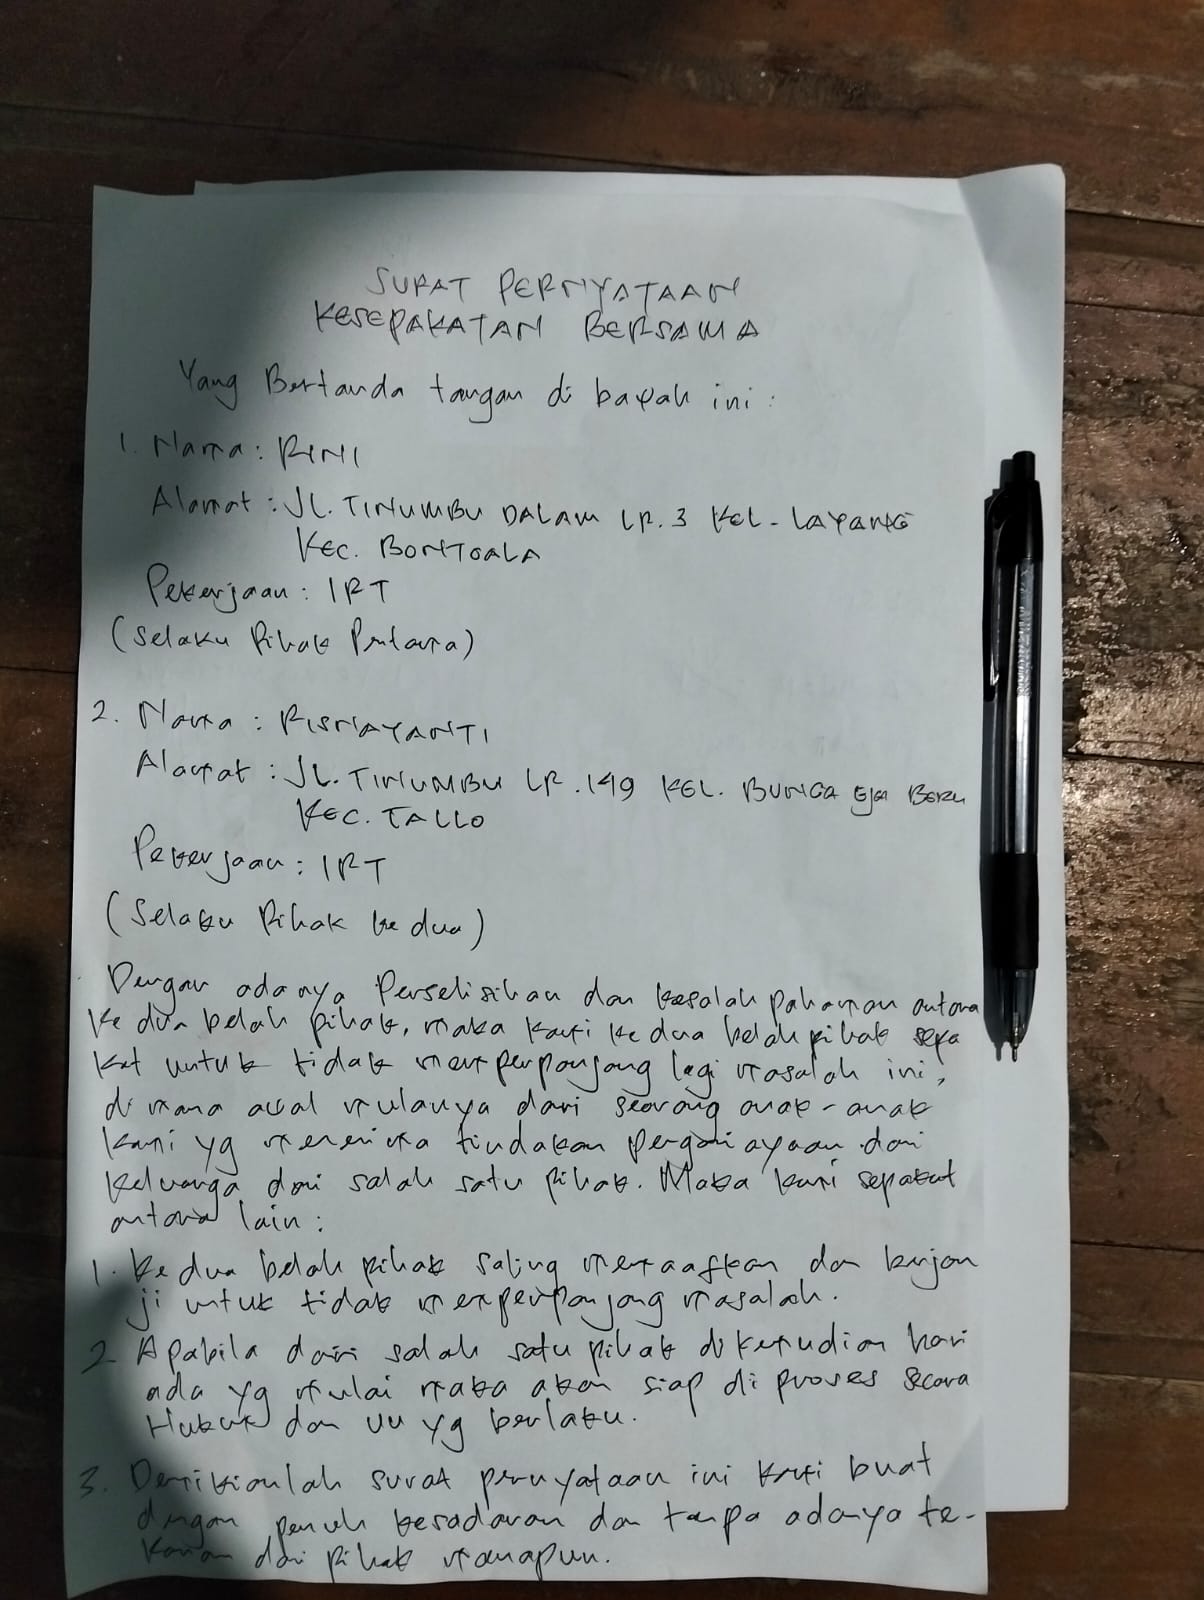 SURAT PERNYATAAN
KESEPAKATAN BERSAMA
Yang Bertanda tangan di bawah ini :
1. Nama : RINI
Alamat : JL. TINUMBU DALAM LR. 3 KEL - LAYANG
KEC. BONTOALA
Pekerjaan : IRT
(Selaku Pihak Pertama)
2. Nama : RISNAYANTI
Alamat : JL. TINUMBU LR. 149 KEL. BUNGA EJA BERU
KEC. TALLO
Pekerjaan : IRT
(Selaku Pihak ke dua)
Dengan adanya Perselisihan dan kesalah pahaman antara
ke dua belah pihak, maka kami ke dua belah pihak sepa
kat untuk tidak memperpanjang lagi masalah ini,
di mana awal mulanya dari seorang anak - anak
kami yg menerima tindakan penganiayaan dari
keluarga dari salah satu pihak. Maka kami sepakat
antara lain :
1. Ke dua belah pihak saling memaafkan dan berjan
ji untuk tidak memperpanjang masalah.
2. Apabila dari salah satu pihak di kemudian hari
ada yg mulai maka akan siap di proses secara
Hukum dan UU yg berlaku.
3. Demikianlah surat pernyataan ini kami buat
dengan penuh kesadaran dan tanpa adanya te-
kanan dari pihak manapun.